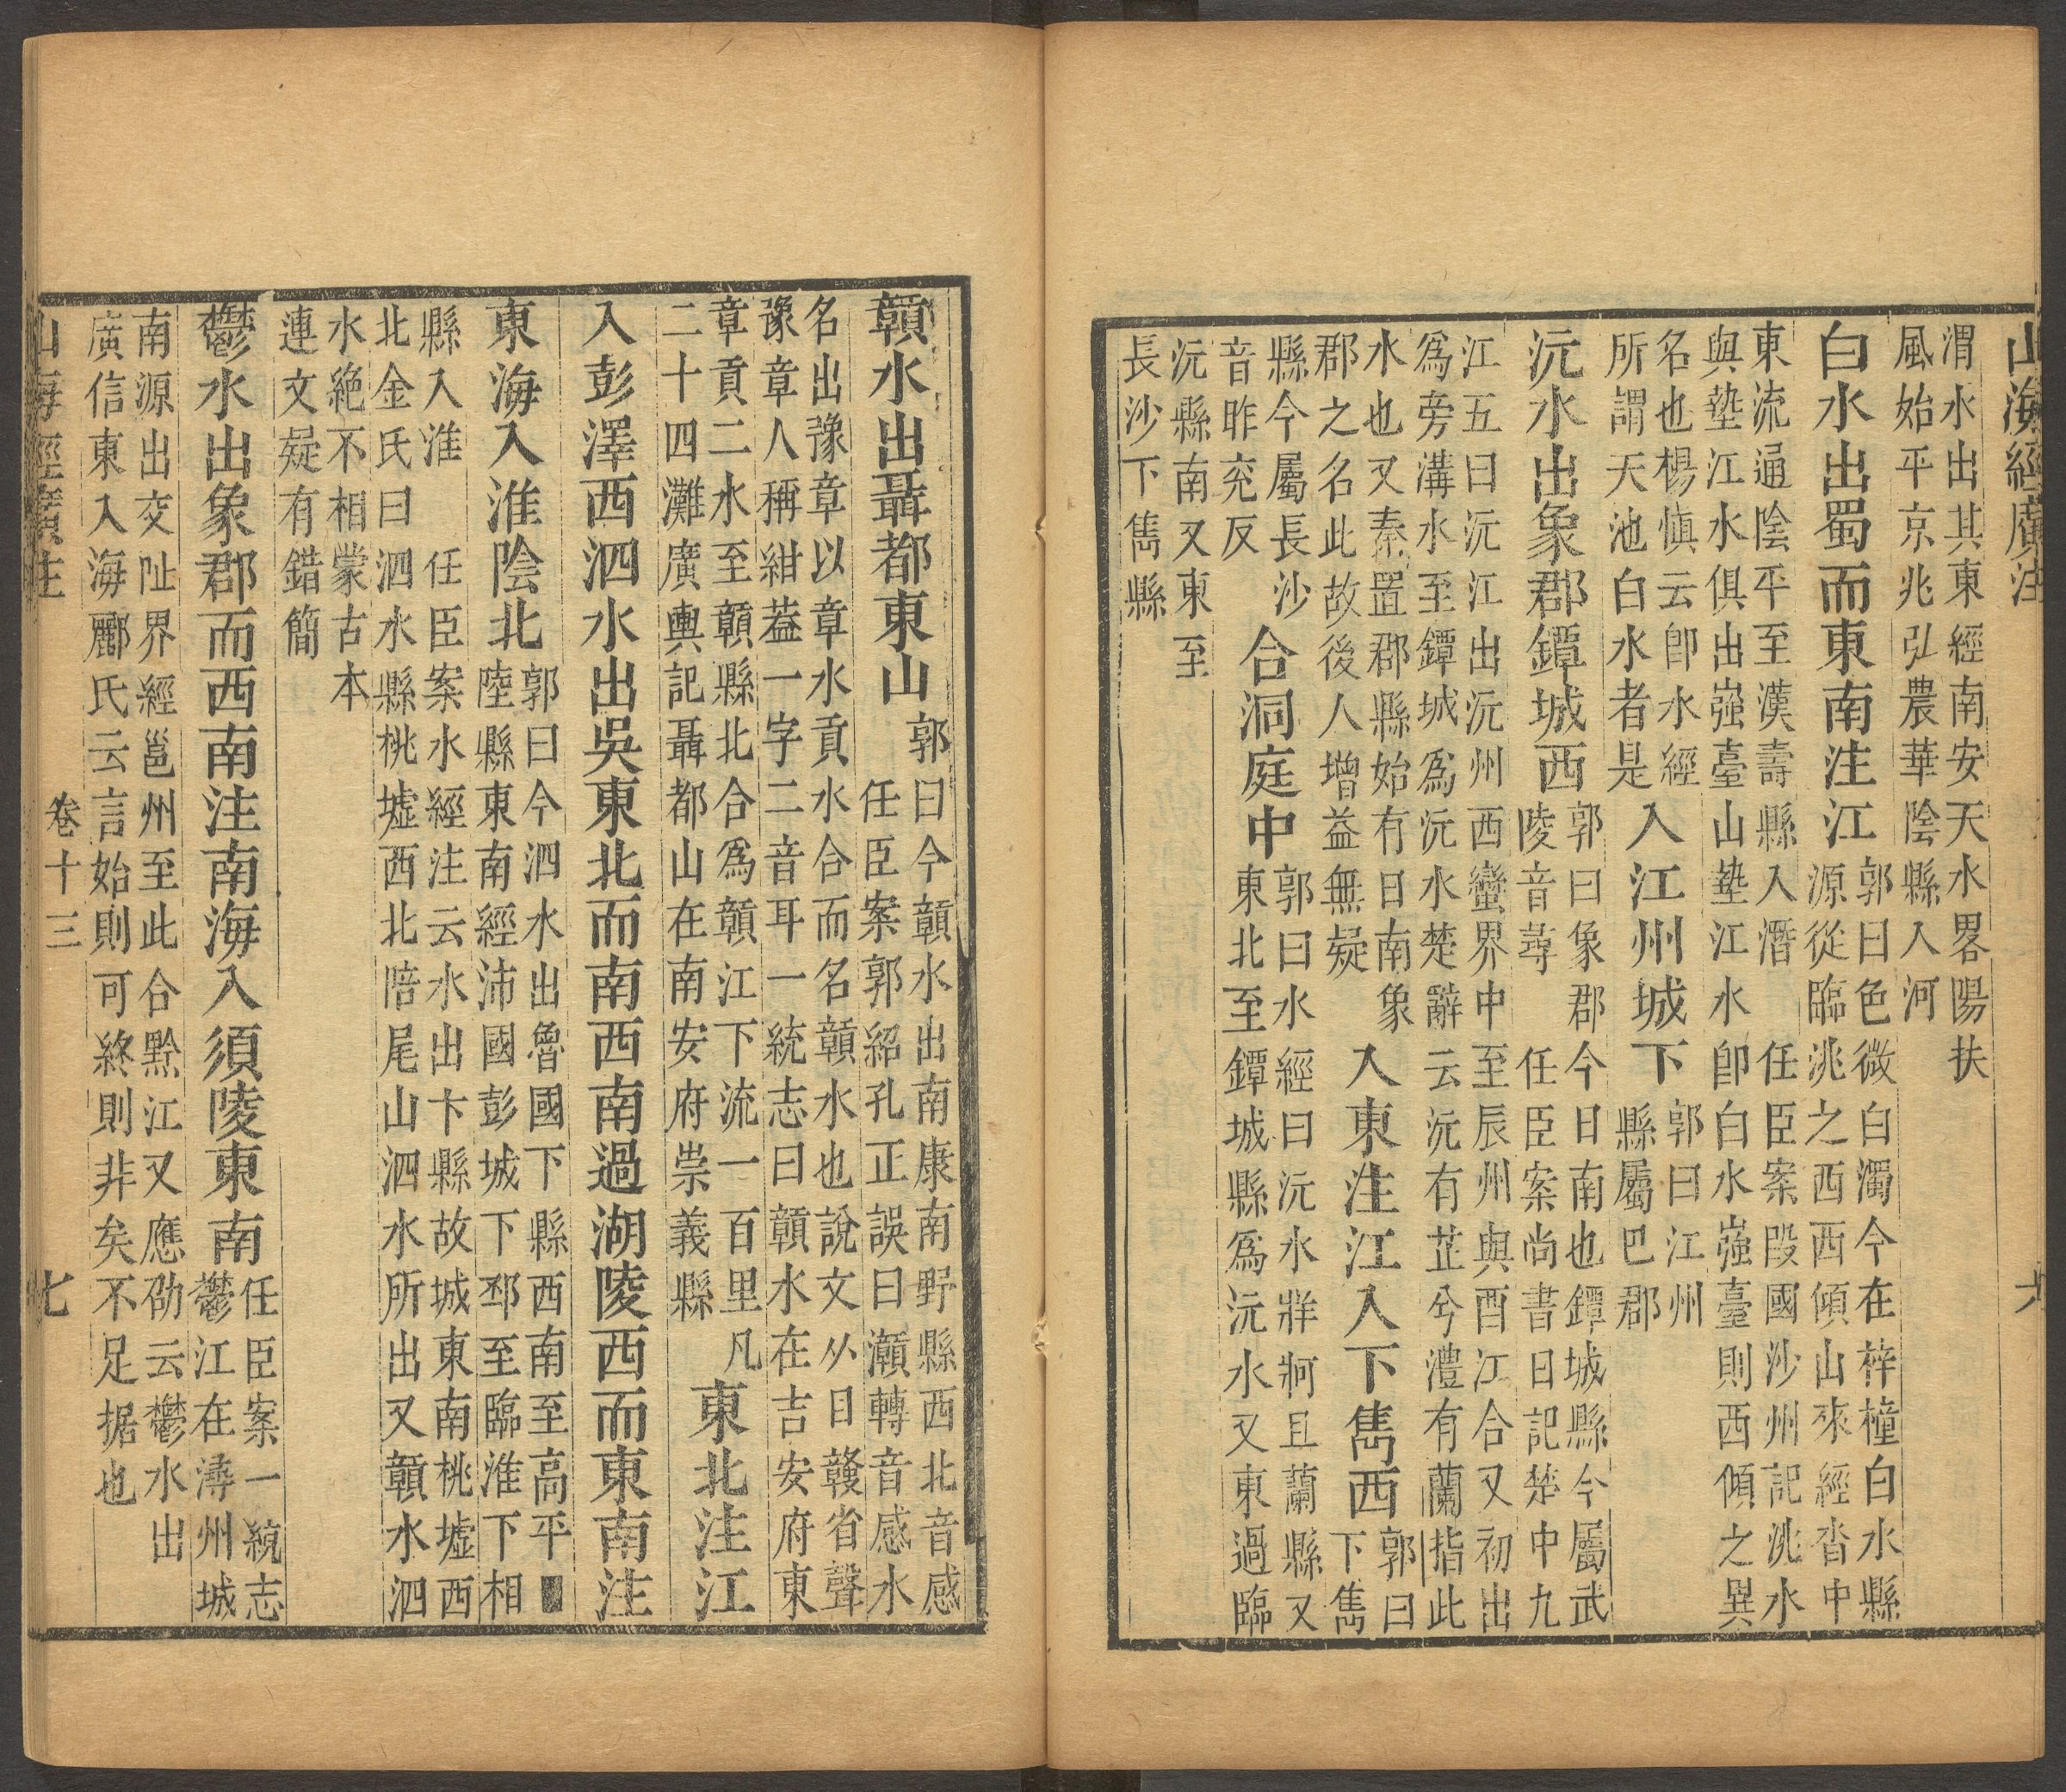 山海經廣注 六
渭水出其東經南安天水畧陽扶
風始平京兆弘農華陰縣入河
白水出蜀而東南注江
郭曰色微白濁今在梓橦白水縣
源從臨洮之西西傾山來經沓中
東流通陰平至漢壽縣入潛 任臣案段國沙州記洮水
與墊江水俱出嵹臺山墊江水卽白水嵹臺則西傾之異
名也楊慎云卽水經
所謂天池白水者是
入江州城下
郭曰江州
縣屬巴郡
沅水出象郡鐔城西
郭曰象郡今日南也鐔城縣今屬武
陵音蕁 任臣案尚書日記楚中九
江五曰沅江出沅州西蠻界中至辰州與酉江合又初出
為旁溝水至鐔城為沅水楚辭云沅有芷兮澧有蘭指此
水也又秦置郡縣始有日南象
郡之名此故後人增益無疑
入東注江入下雋西
郭曰
下雋
縣今屬長沙
音昨兗反
合洞庭中
郭曰水經曰沅水牂牁且蘭縣又
東北至鐔城縣為沅水又東過臨
沅縣南又東至
長沙下雋縣
贑水出聶都東山
郭曰今贑水出南康南野縣西北音感
任臣案郭紹孔正誤曰灨轉音感水
名出豫章以章水貢水合而名贑水也說文从日竷省聲
豫章人稱紺葢一字二音耳一統志曰贑水在吉安府東
章貢二水至贑縣北合為贑江下流一百里凡
二十四灘廣輿記聶都山在南安府崇義縣
東北注江
入彭澤西泗水出吳東北而南西南過湖陵西而東南注
東海入淮陰北
郭曰今泗水出魯國下縣西南至高平
陸縣東南經沛國彭城下邳至臨淮下相
縣入淮 任臣案水經注云水出卞縣故城東南桃墟西
北金氏曰泗水縣桃墟西北陪尾山泗水所出又贑水泗
水絕不相蒙古本
連文疑有錯簡
鬱水出象郡而西南注南海入須陵東南
任臣案一統志
鬱江在潯州城
南源出交阯界經邕州至此合黔江又應劭云鬱水出
廣信東入海酈氏云言始則可終則非矣不足据也
山海經廣注 卷十三 七